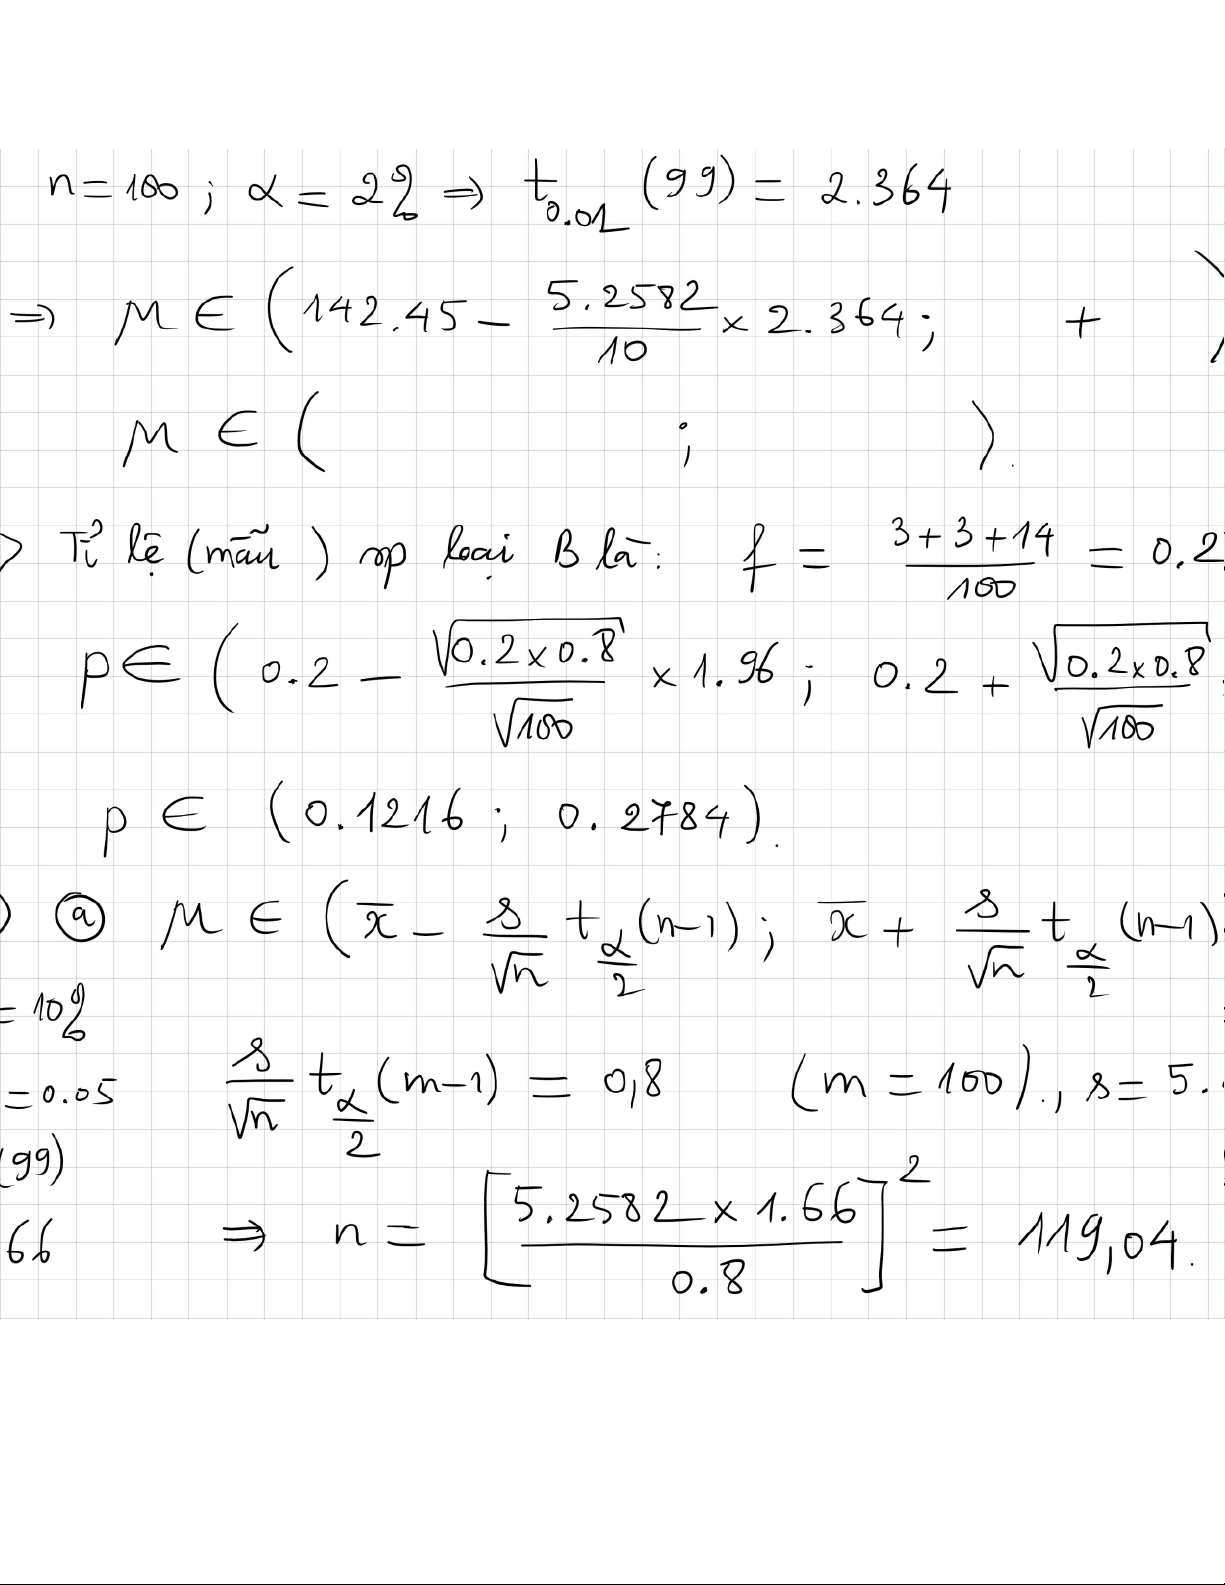 n = 100 ; α = 2% ⇒ t_{0.01} (99) = 2.364
⇒ μ ∈ ( 142.45 − \frac{5.2582}{10} × 2.364 ; + )
μ ∈ ( ; ).
> Tỉ lệ (mẫu ) sp loại B là: f = \frac{3+3+14}{100} = 0.2
p ∈ ( 0.2 − \frac{\sqrt{0.2 × 0.8}}{\sqrt{100}} × 1.96 ; 0.2 + \frac{\sqrt{0.2 × 0.8}}{\sqrt{100}}
p ∈ (0.1216 ; 0.2784).
) ⓐ μ ∈ ( \overline{x} − \frac{s}{\sqrt{n}} t_{\frac{α}{2}} (n−1) ; \overline{x} + \frac{s}{\sqrt{n}} t_{\frac{α}{2}} (n−1)
= 10%
= 0.05 \frac{s}{\sqrt{n}} t_{\frac{α}{2}} (m−1) = 0,8 (m = 100)., s = 5.
(99)
66 ⇒ n = [ \frac{5.2582 × 1.66}{0.8} ]^2 = 119,04.